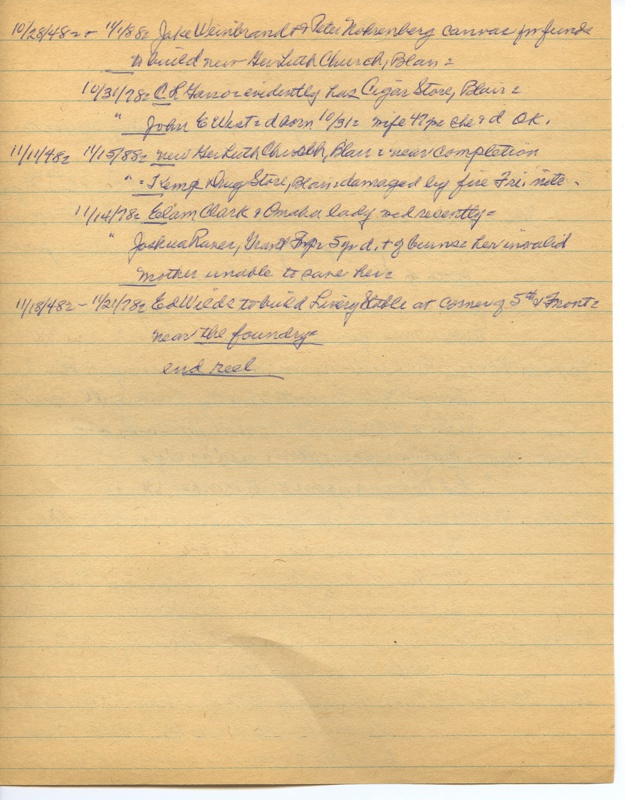 10/28/48 = + 11/1/88 = Jake Weinbrandt + Peter Nohrenberg canvas for funds
to build new Ger Luth Church, Blair =
10/31/78 = C R evidently has Cigar Store, Blair =
" John E West = d born 10/31 = wife 47 yrs che d OK.
11/11/48 = 11/15/88 = new Ger Luth Church, Blair = near completion
" = Kemp Drug Store, Blair = damaged by fire Fri. nite -
11/14/78 = Elam Clark + Omaha lady md recently =
" Joshua Raver, Grant 5 yr d. + of burns = her invalid
mother unable to save her =
11/18/48 = - 11/21/78 = Ed Wilde to build Livery Stable at corner of 5th & Front =
near the foundry =
end reel